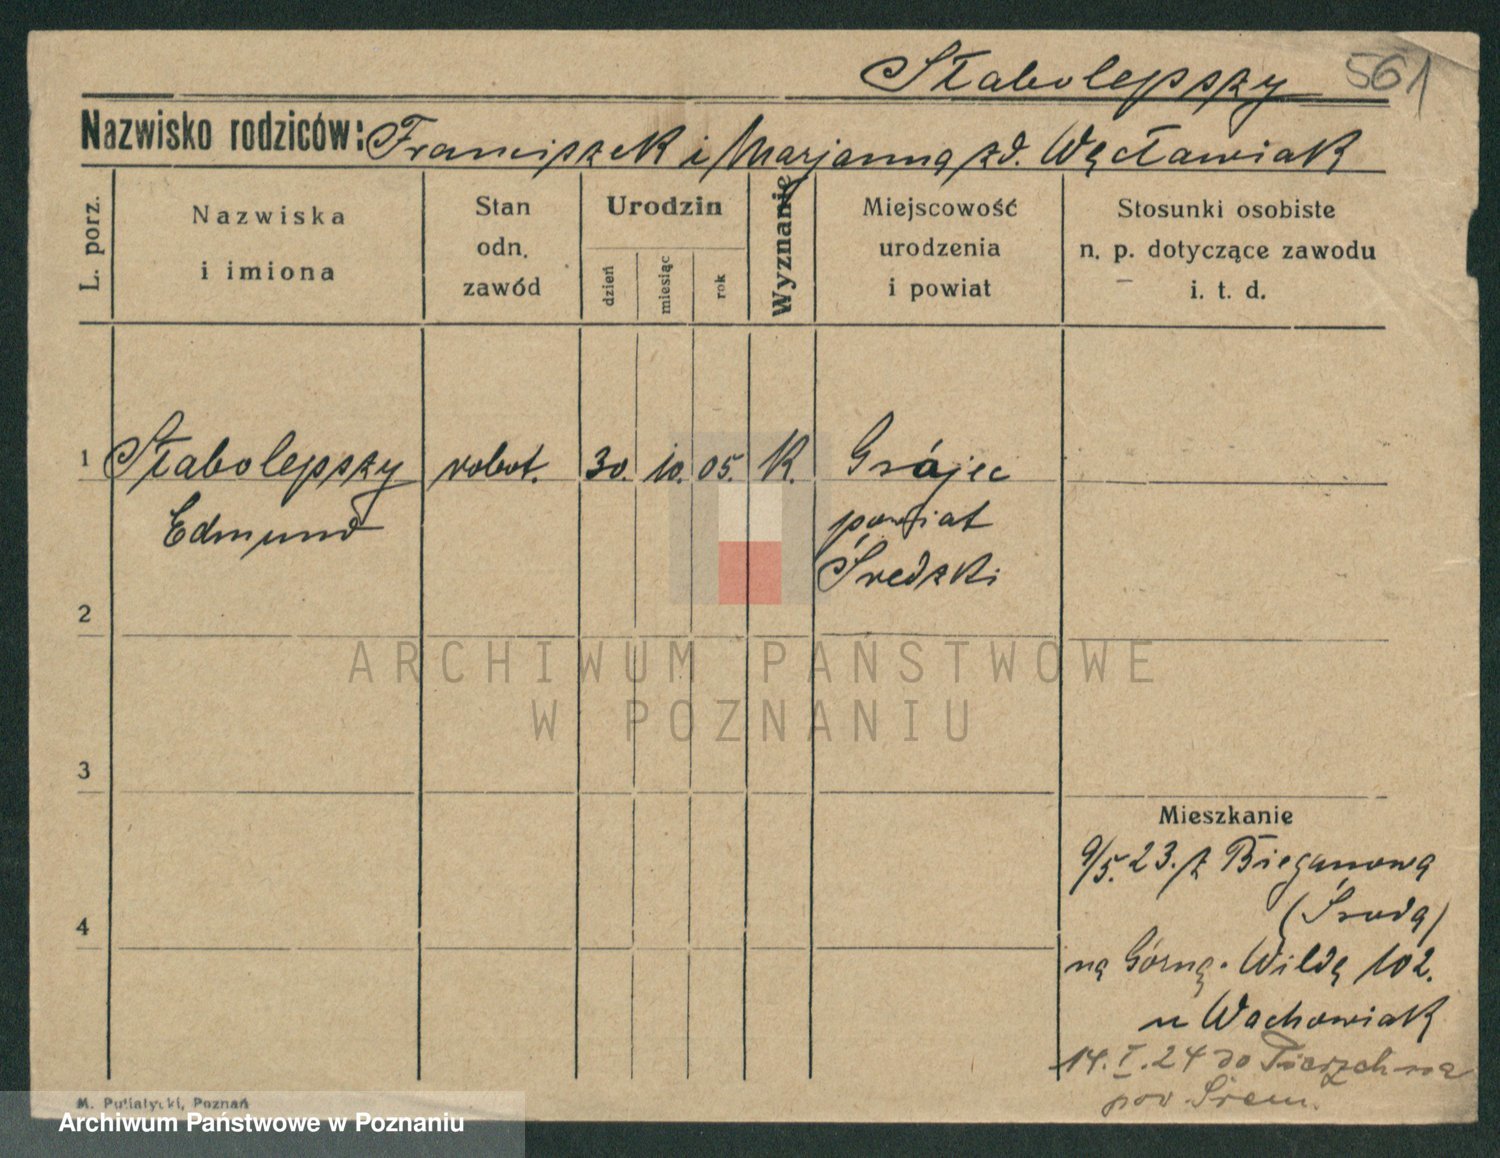 Słabolepszy 561
Nazwisko rodziców: Franciszek i Marjanna zd. Węcławiak
L. porz.
Nazwiska
i imiona
Stan
odn.
zawód
Urodzin
dzień
miesiąc
rok
Wyznanie
Miejscowość
urodzenia
i powiat
Stosunki osobiste
n. p. dotyczące zawodu
i. t. d.
1 Słabolepszy robot. 30. 10. 05. K. Grójec
Edmund powiat
Średzki
2
ARCHIWUM PAŃSTWOWE
W POZNANIU
3
Mieszkanie
9/5. 23. z Bieganowa
(Środa)
4
na Górną-Wildę 102.
u Wachowiak
14. I. 24 do
pow Śrem.
M. Putiatycki, Poznań
Archiwum Państwowe w Poznaniu